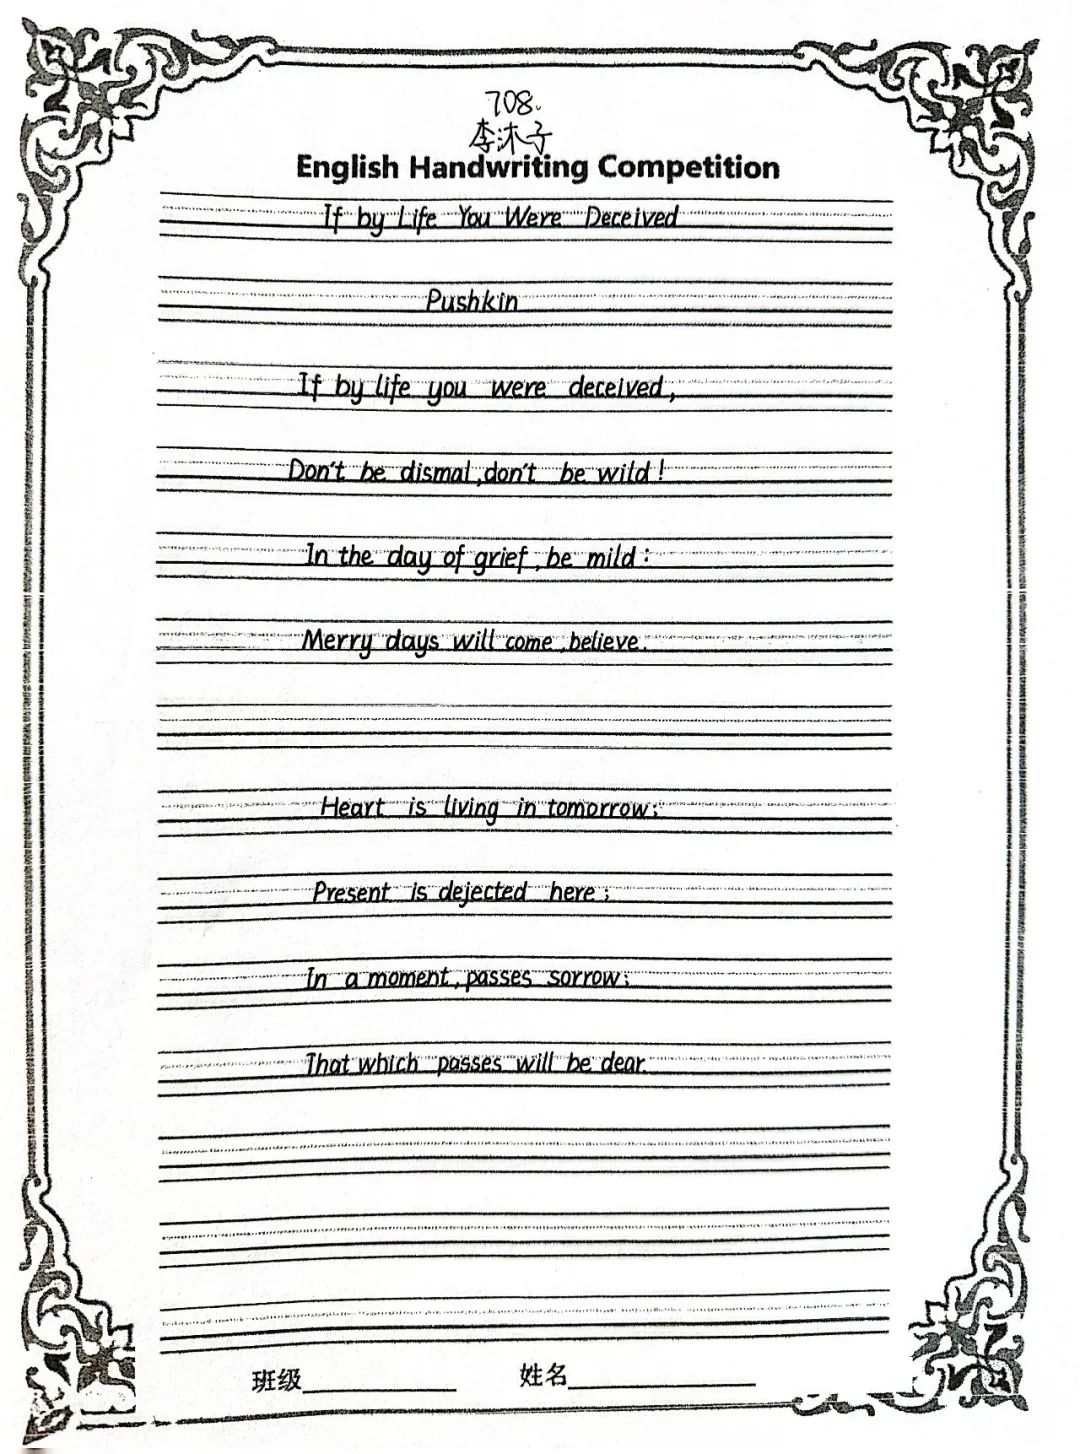 708.
李沐子
English Handwriting Competition
If by Life You Were Deceived
Pushkin
If by life you were deceived,
Don't be dismal,don't be wild!
In the day of grief,be mild:
Merry days will come,believe.
Heart is living in tomorrow;
Present is dejected here;
In a moment,passes sorrow;
That which passes will be dear.
班级 姓名